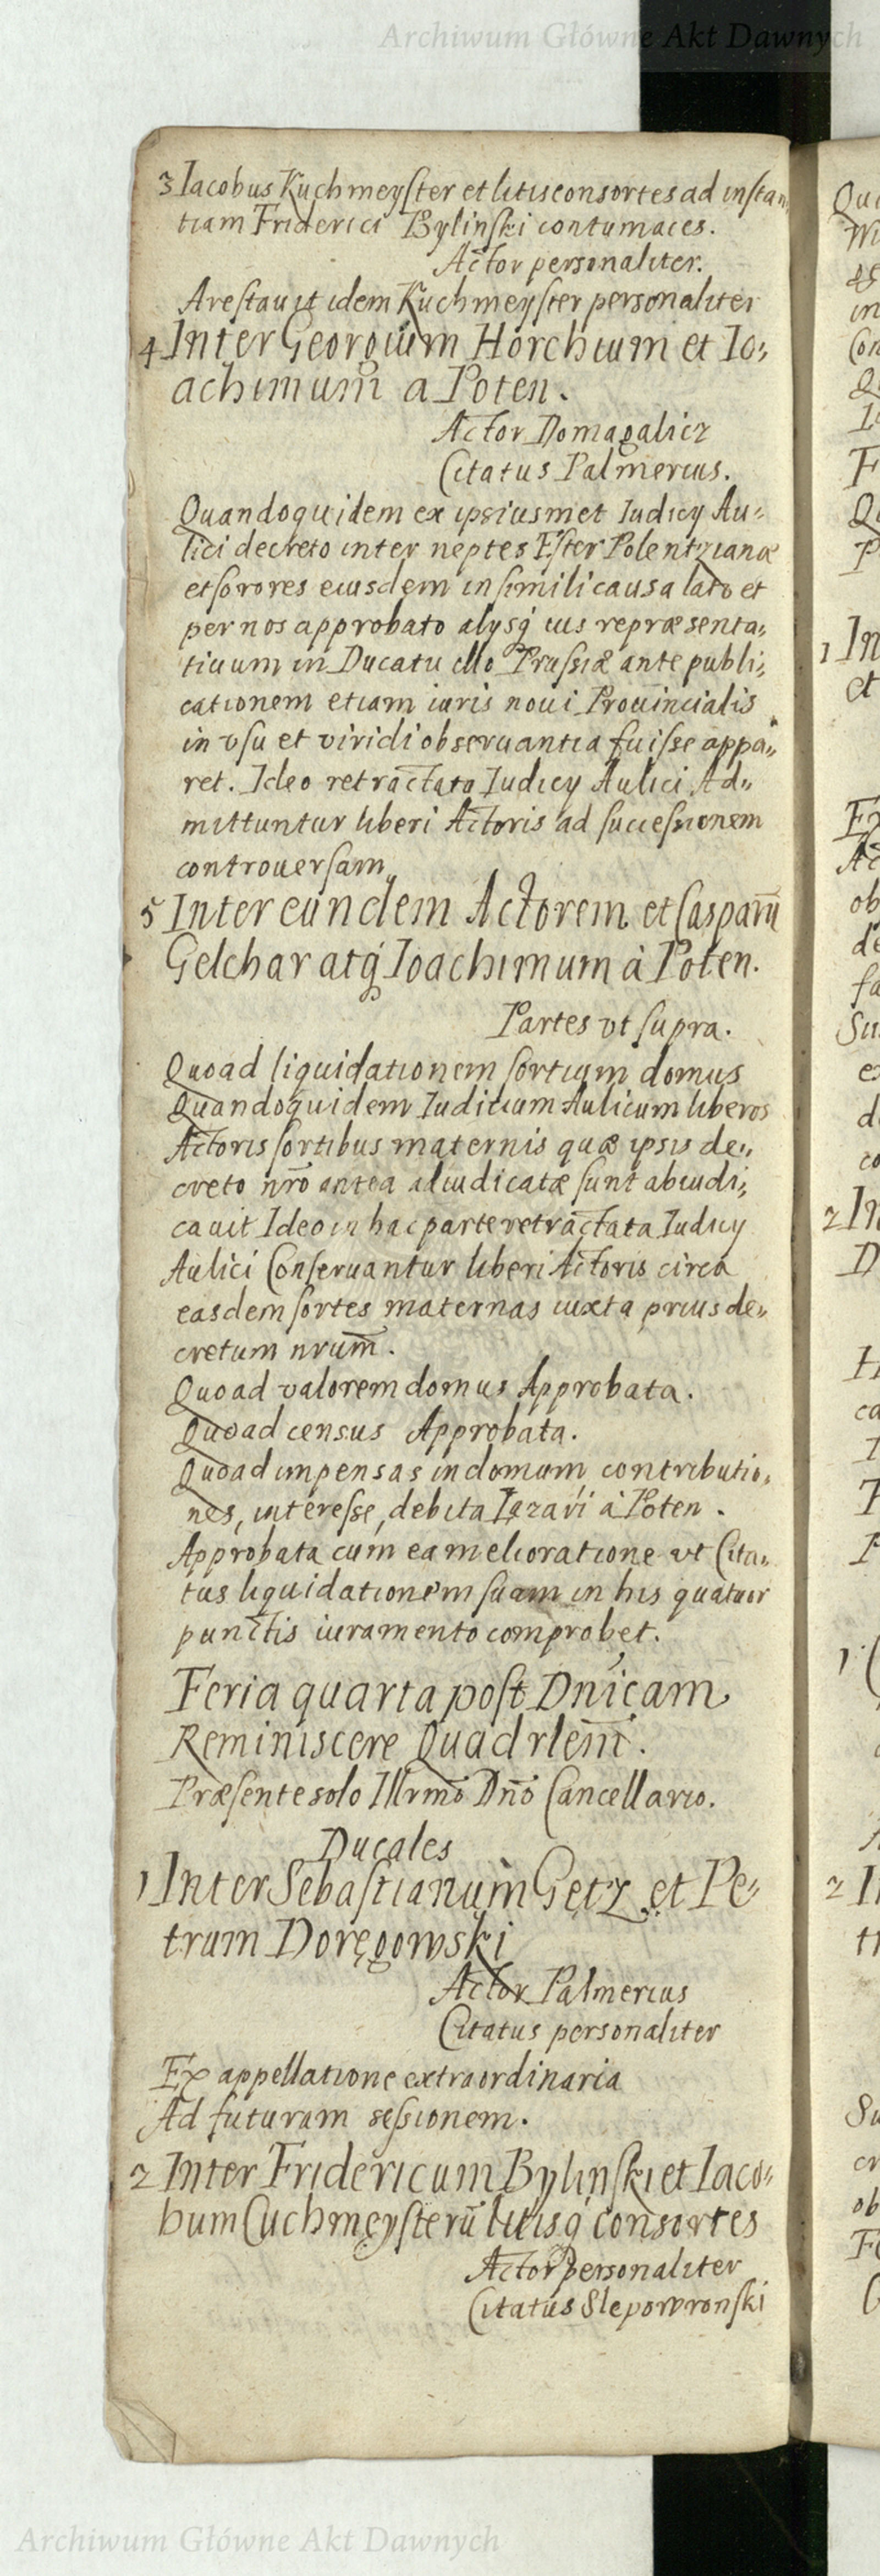 Archiwum Główne Akt Dawnych
3 Iacobus Kuchmeyster et litisconsortes ad instan,
tiam Friderici Bylinski contumaces.
Actor personaliter.
Arestauit idem Kuchmeyster personaliter
4 Inter Georgium Horchium et Io,
achimum a Poten.
Actor Domagalicz
Citatus Palmerius.
Quandoquidem ex ipsiusmet Iudicij Au,
lici decreto inter neptes Ester Polentzianæ
et sorores eiusdem in simili causa lato et
per nos approbato alijsq́ ius repræsenta,
tiuum in Ducatu illo Prussiæ ante publi,
cationem etiam iuris noui Prouincialis
in vsu et viridi obseruantia fuisse appa,
ret. Ideo retractato Iudicij Aulici, Ad,
mittuntur liberi Actoris ad successionem
controuersam.
5 Inter eundem Actorem et Casparū
Gelchar atq́ Ioachimum à Poten.
Partes vt supra.
Quoad liquidationem sortium domus
Quandoquidem Iuditium Aulicum liberos
Actoris sortibus maternis quæ ipsis de,
creto nr̄o antea adiudicatæ sunt abiudi,
cauit Ideo in hac parte retractata Iudicij
Aulici Conseruantur liberi Actoris circa
easdem sortes maternas iuxta prius de,
cretum nrum̄.
Quoad valorem domus Approbata.
Quoad census Approbata.
Quoad impensas in domum, contributio,
nes, interesse, debita Lazari à Poten.
Approbata cum ea melioratione vt Cita,
tus liquidationem suam in his quatuor
punctis iuramento comprobet.
Feria quarta post Dnīcam
Reminiscere Quadrlem̄.
Præsente solo Illrmō Dnō Cancellario.
Ducales
1 Inter Sebastianum Getz et Pe,
trum Doręgowski
Actor Palmerius
Citatus personaliter
Ex appellatione extraordinaria
Ad futuram sessionem.
2 Inter Fridericum Bylinski et Iaco,
bum Cuchmeysterū litisq́ consortes
Actor personaliter
Citatus Slepowronski
Archiwum Główne Akt Dawnych